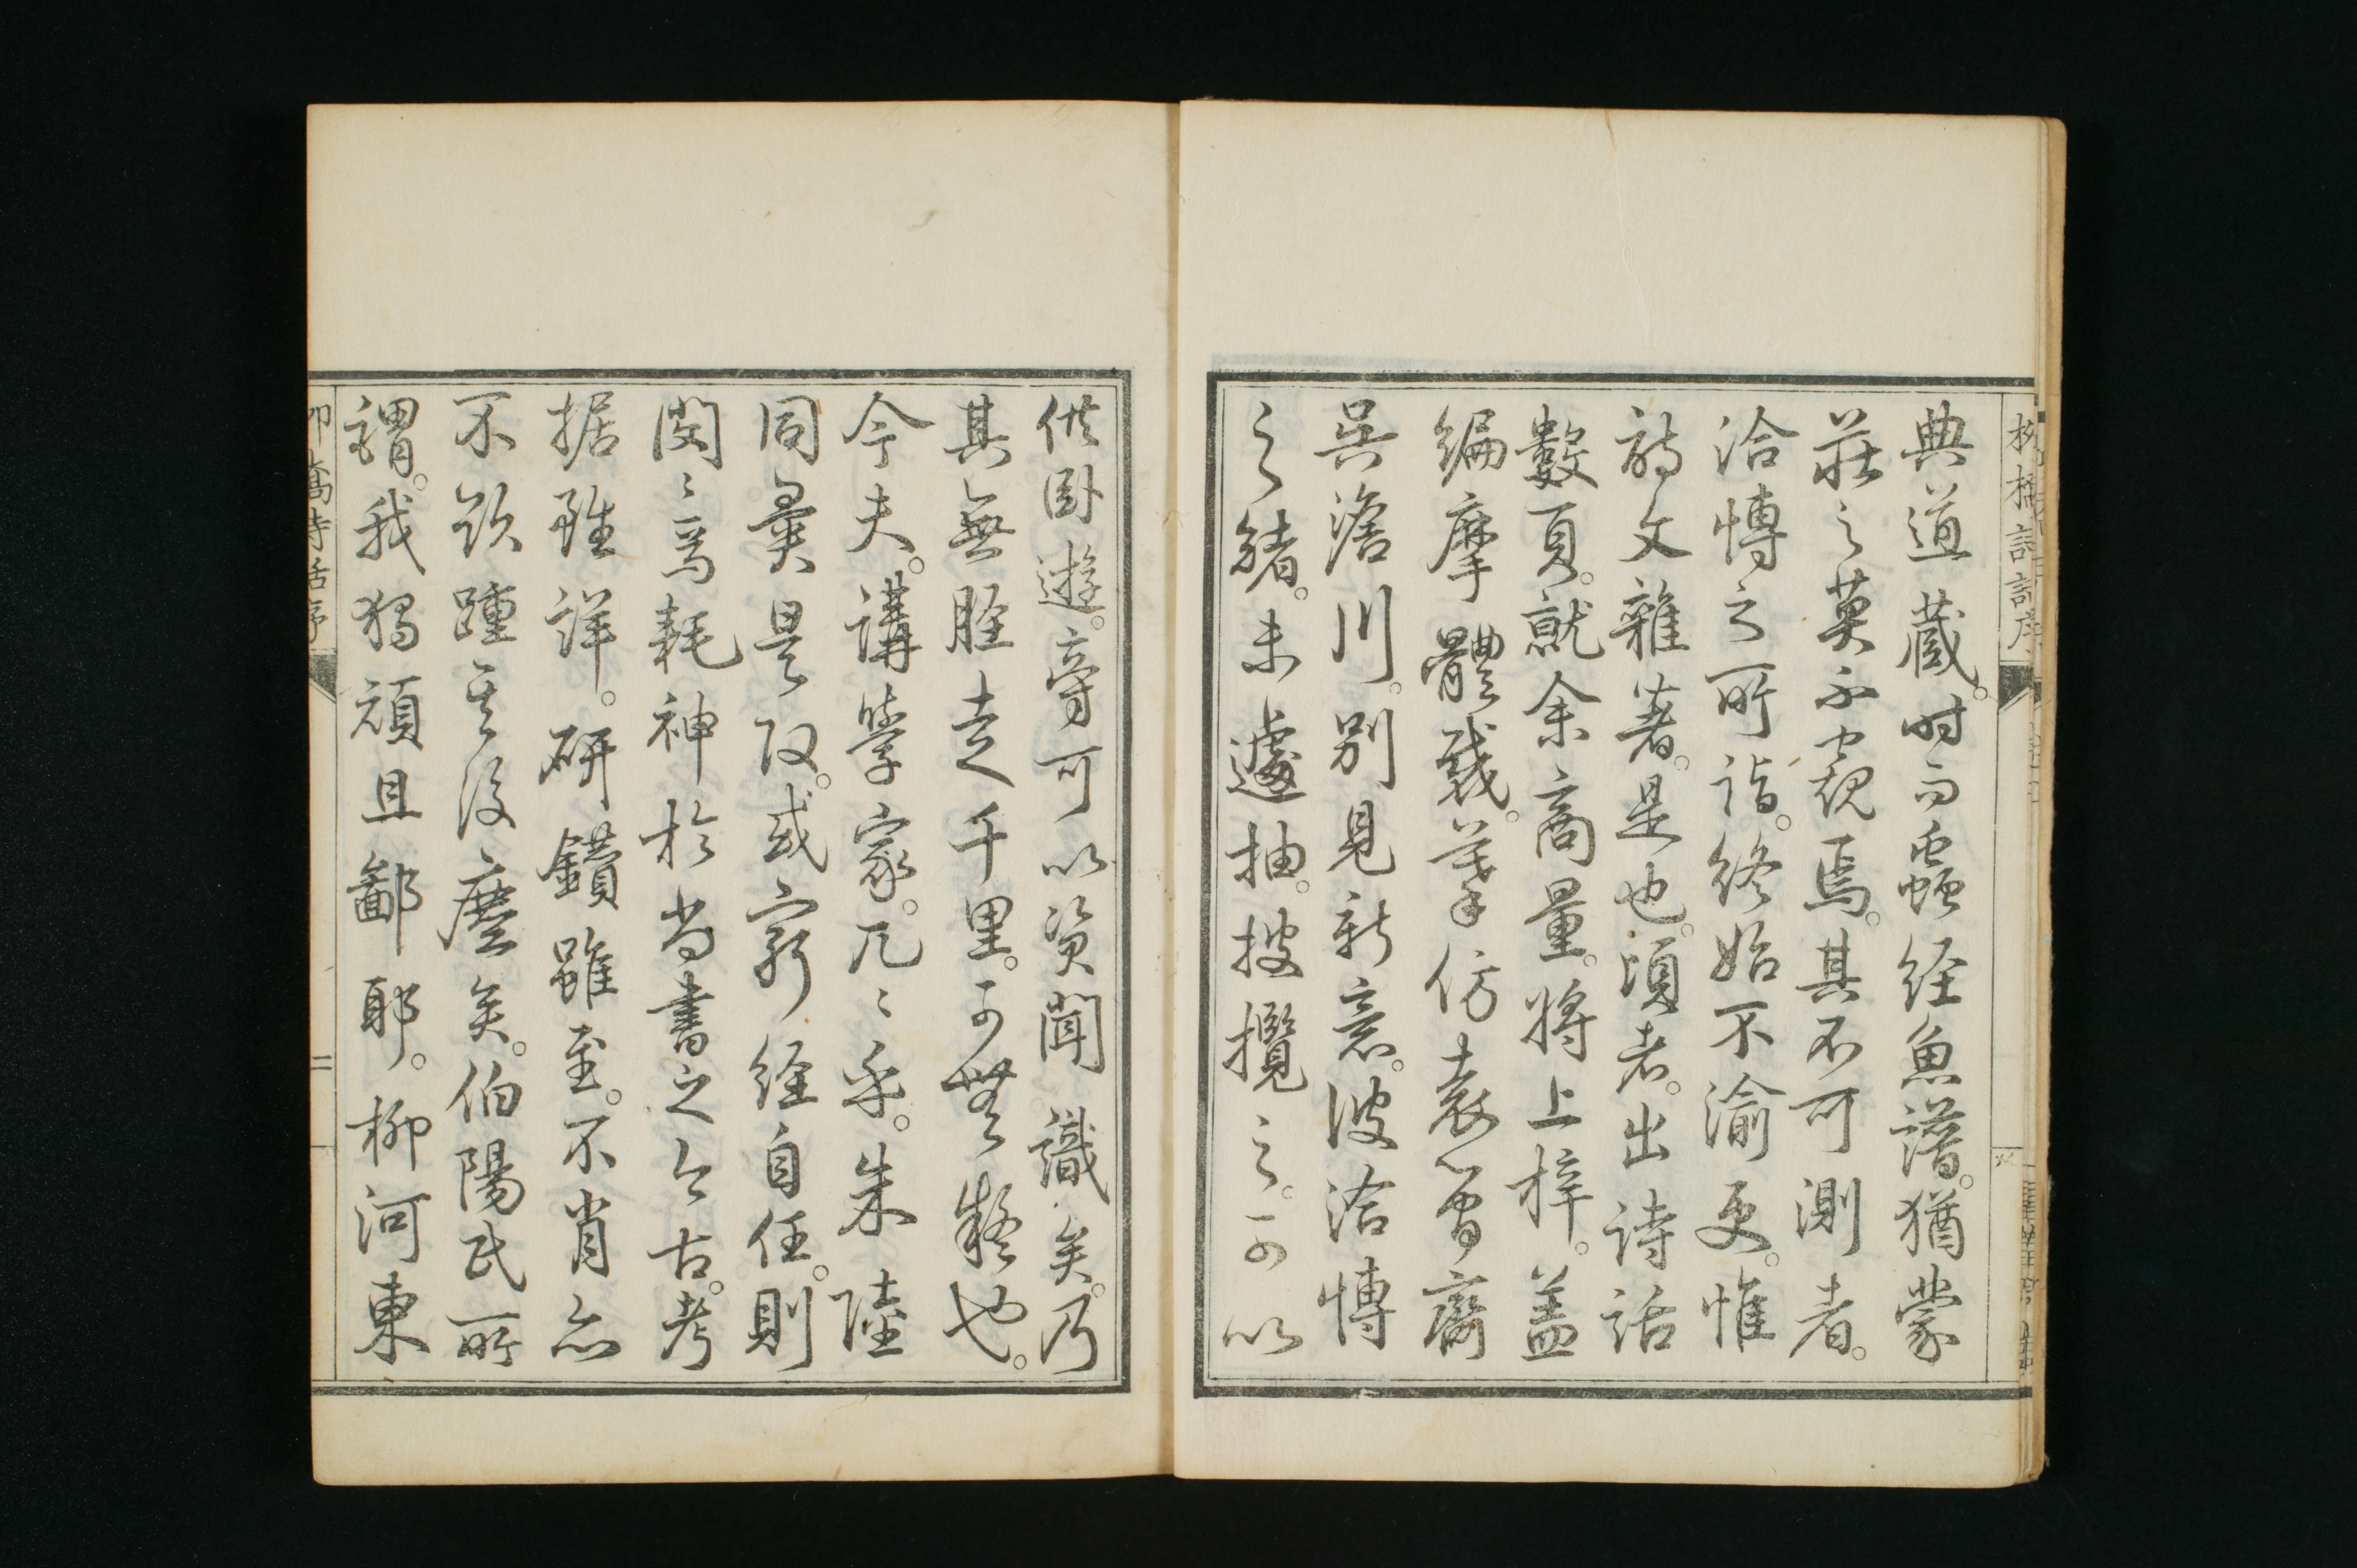 柳橋詩話序
典道藏。时而蟲経魚譜。猶蒙
莊之莫不窺焉。其不可測者。
洽博之所詣。終始不渝更。惟
詩文雜著。是也。頃者。出詩話
數頁。就余商量。將上梓。蓋
編摩體裁。筆仿袁簡齋
吳澹川。別見新意。彼洽博
之緒。未遽抽。披攬之。可以
供卧遊。旁可以資聞識矣。乃
其無脛走千里。可無疑也。
今夫。講學家。凡〻乎。朱陸
同異是攷。或窮経自任。則
閔〻焉耗神於尚書之今古。考
据雖詳。研鑽雖至。不肖亦
不欲踵其後塵矣。伯陽氏所
謂。我獨頑且鄙耶。柳河東
柳橋詩話序
二